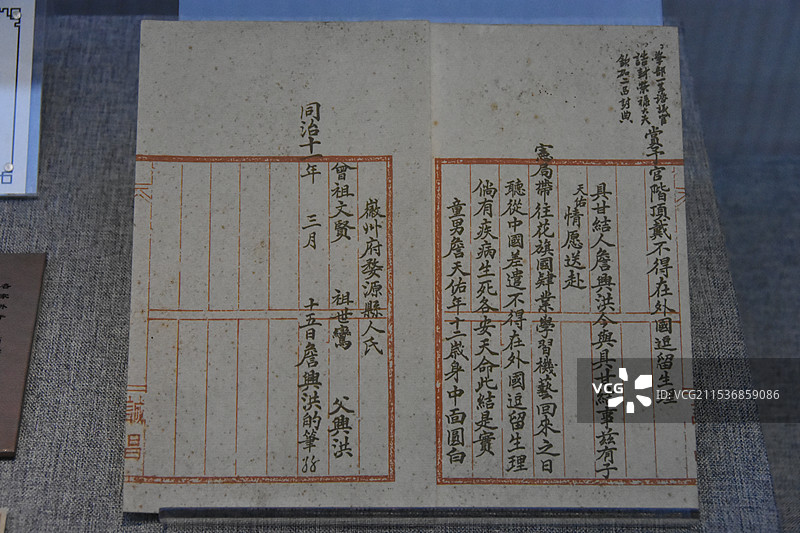 學部一等諮議官
誥封榮祿大夫
欽加二品封典
賞予官階頂戴不得在外國逗留生理
具甘結人詹興洪今與具甘結事兹有子
天佑情愿送赴
憲局帶往花旗國肄業學習機藝回來之日
聽從中國差遣不得在外國逗留生理
倘有疾病生死各安天命此結是實
童男詹天佑年十二歲身中面圓白
徽州府婺源縣人氏
曾祖文賢 祖世鸞 父興洪
同治十一年 三月 十五日詹興洪的筆
誠昌
VCG
視覺中國
ID: VCG211536859086